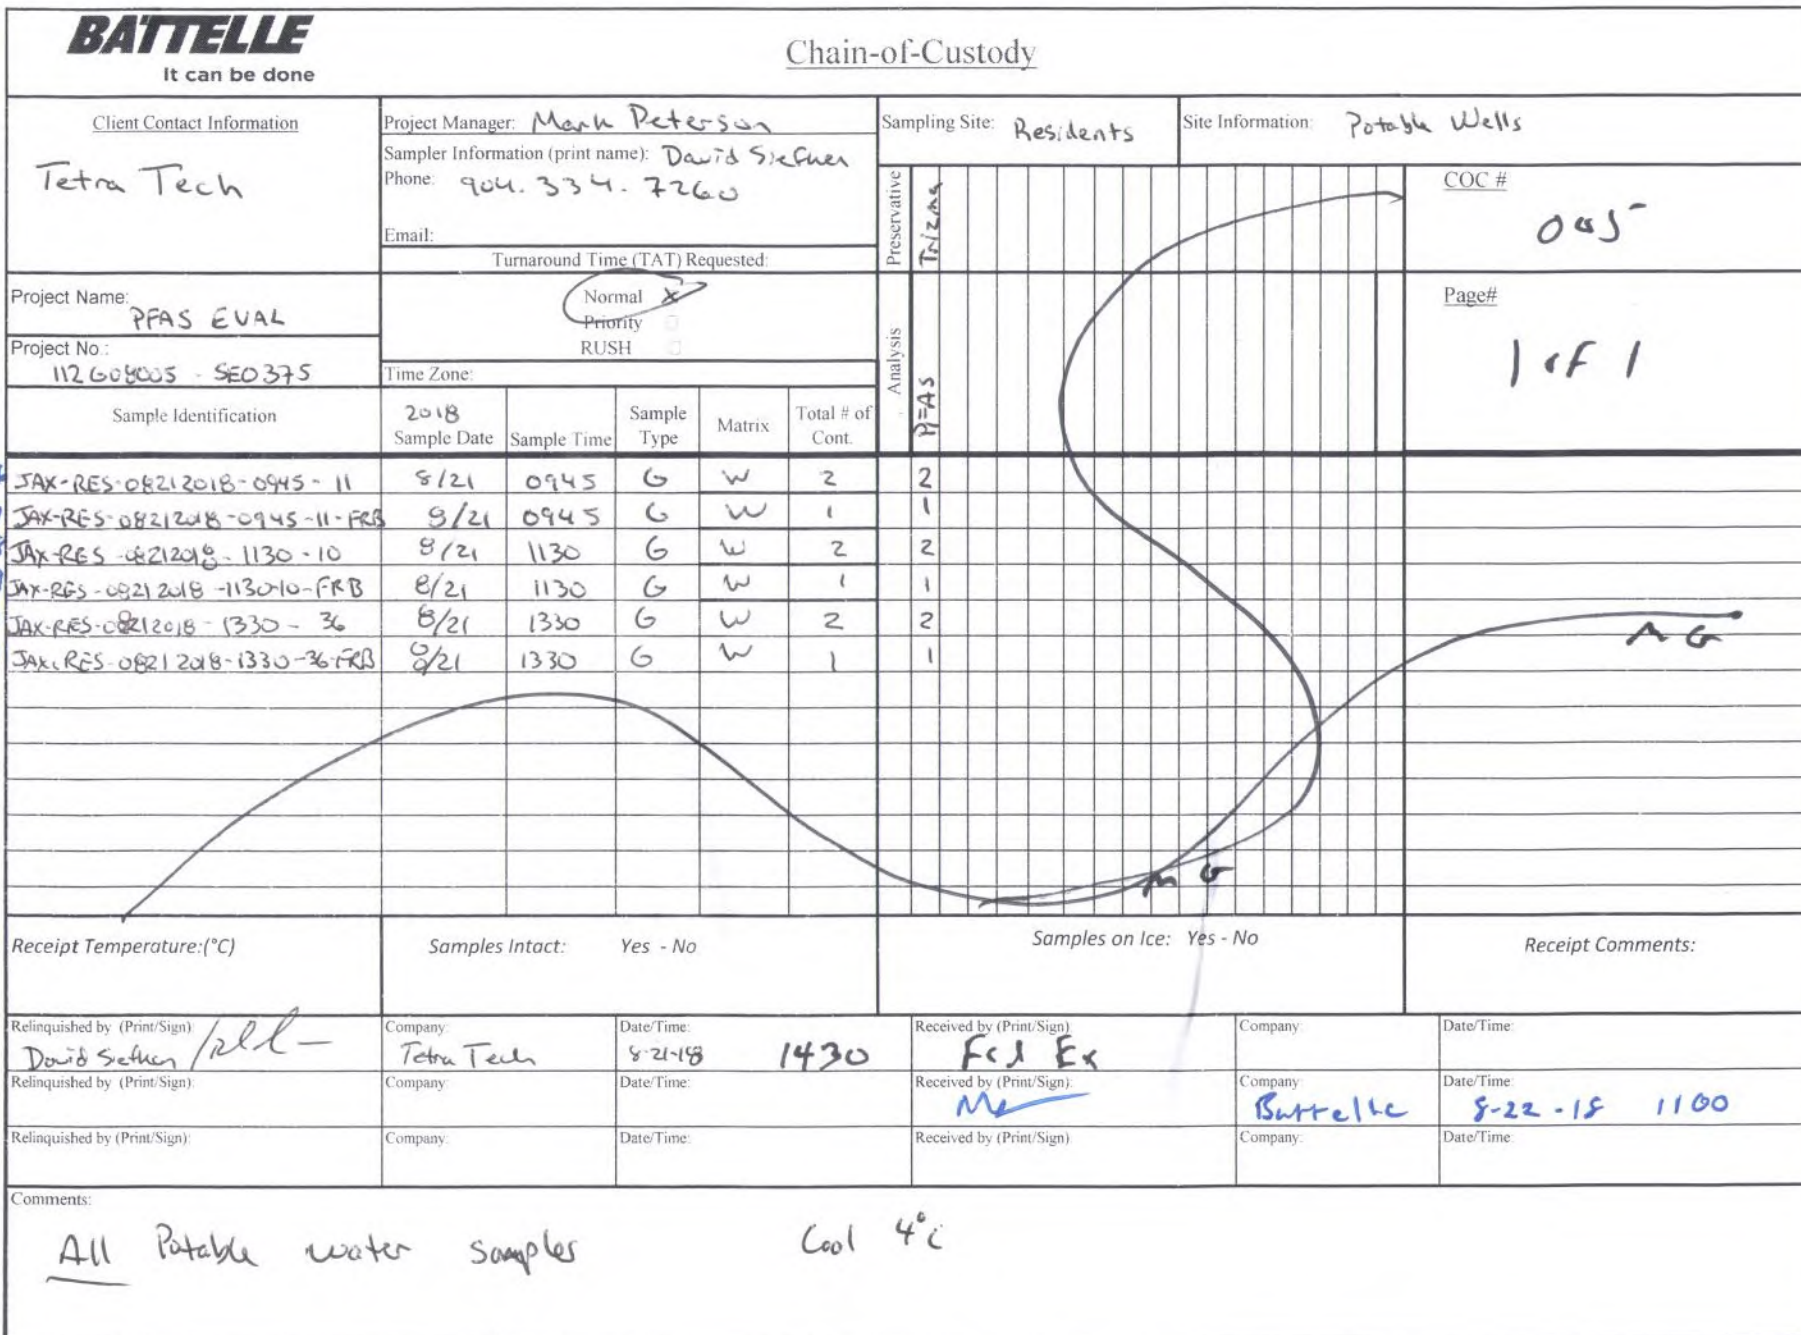 BATTELLE
It can be done
Chain-of-Custody
Client Contact Information
Tetra Tech
Project Manager: Mark Peterson
Sampler Information (print name): David Siefken
Phone: 904.334.7260
Email:
Turnaround Time (TAT) Requested:
Normal X
Priority
RUSH
Time Zone:
Sampling Site: Residents
Site Information: Potable Wells
Preservative
Trizma
Analysis
PFAS
COC #
005
Page#
1 of 1
Project Name:
PFAS EVAL
Project No.:
112G08005 - SE0375
Sample Identification 2018 Sample Date Sample Time Sample Type Matrix Total # of Cont.
JAX-RES-08212018-0945-11 8/21 0945 G W 2 2
JAX-RES-08212018-0945-11-FRB 8/21 0945 G W 1 1
JAX-RES-08212018-1130-10 8/21 1130 G W 2 2
JAX-RES-08212018-1130-10-FRB 8/21 1130 G W 1 1
JAX-RES-08212018-1330-36 8/21 1330 G W 2 2
JAX-RES-08212018-1330-36-FRB 8/21 1330 G W 1 1
Receipt Temperature:(°C) Samples Intact: Yes - No Samples on Ice: Yes - No Receipt Comments:
Relinquished by (Print/Sign) Company: Date/Time: Received by (Print/Sign) Company: Date/Time:
David Siefken Tetra Tech 8-21-18 1430 Fed Ex
Relinquished by (Print/Sign): Company: Date/Time: Received by (Print/Sign): Company Date/Time:
Battelle 8-22-18 1100
Relinquished by (Print/Sign): Company: Date/Time: Received by (Print/Sign) Company: Date/Time:
Comments:
All Potable water samples Cool 4°C